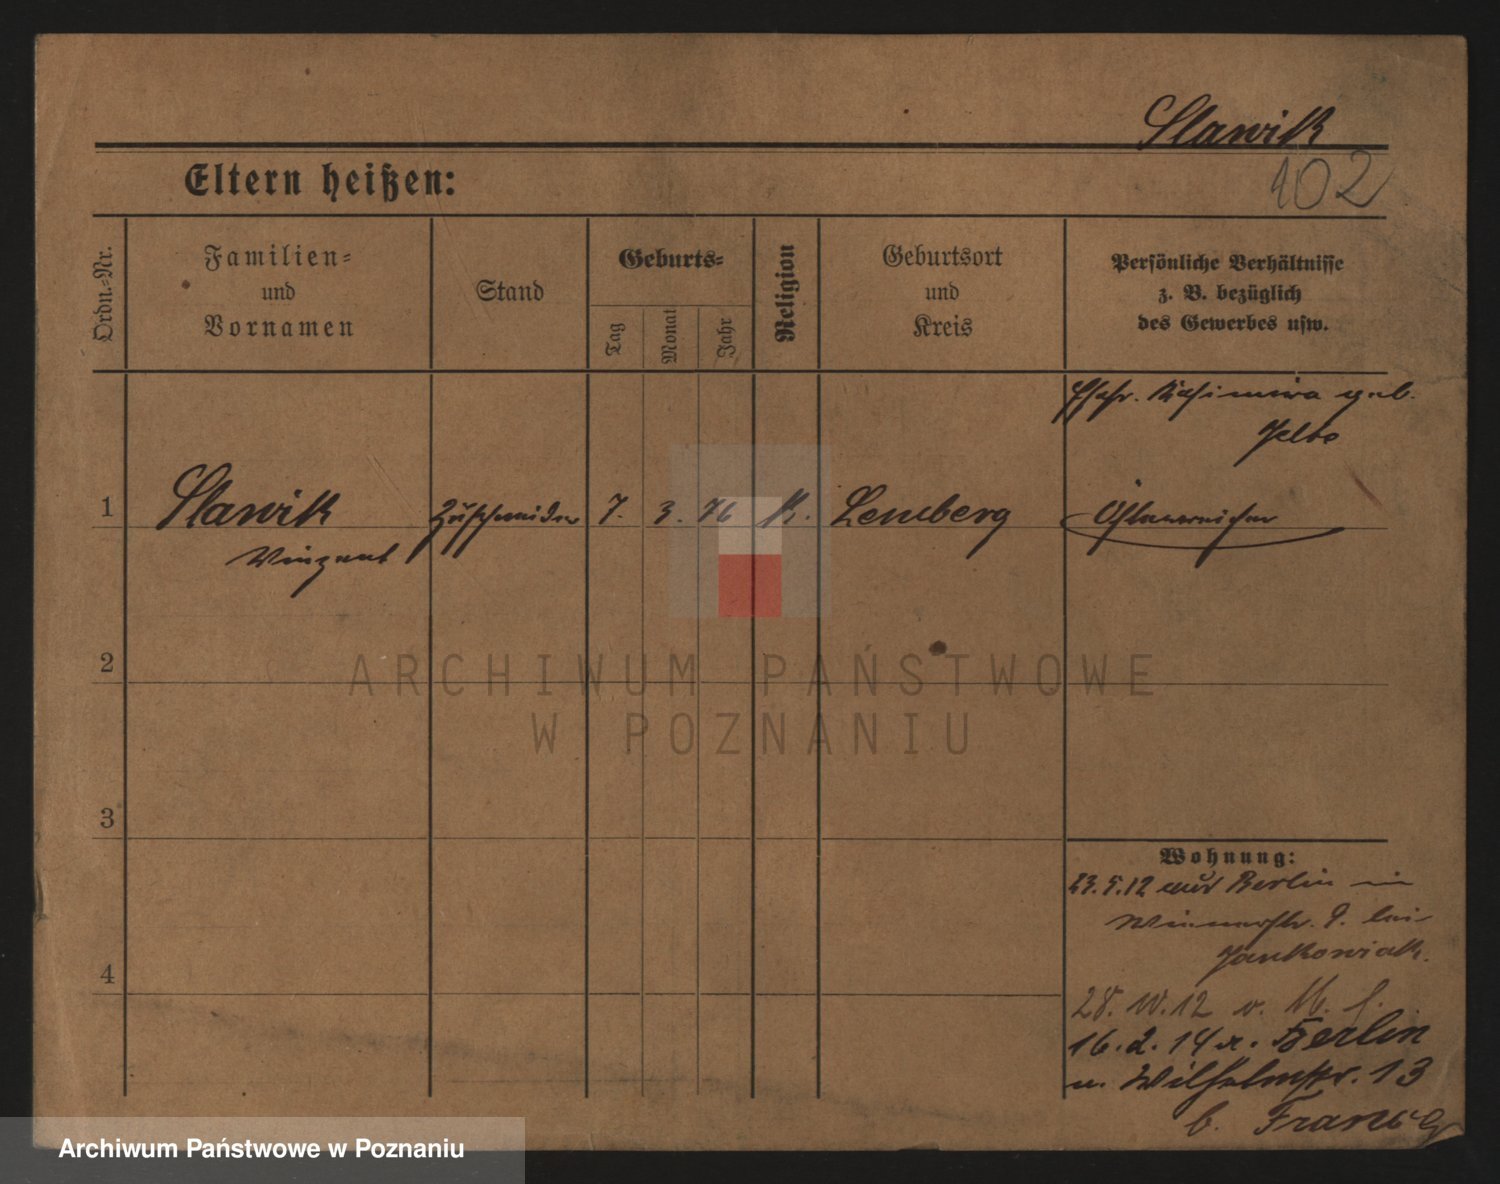 Slawik
102
Eltern heißen:
Ordn.-Nr.
Familien-
und
Vornamen
Stand
Geburts-
Tag
Monat
Jahr
Religion
Geburtsort
und
Kreis
Persönliche Verhältnisse
z. B. bezüglich
des Gewerbes usw.
Ehefr. Kasimira geb.
1 Slawik Zuschneider 7. 3. 76 K. Lemberg Österreicher
Vinzent
2
3
4
ARCHIWUM PAŃSTWOWE
W POZNANIU
Wohnung:
23.5.12 aus Berlin in
Wienerstr. 9. bei
Jankowiak.
28. 10. 12 v.
16. 2. 14 a. Berlin
n. Wilhelmstr. 13
b.
Archiwum Państwowe w Poznaniu